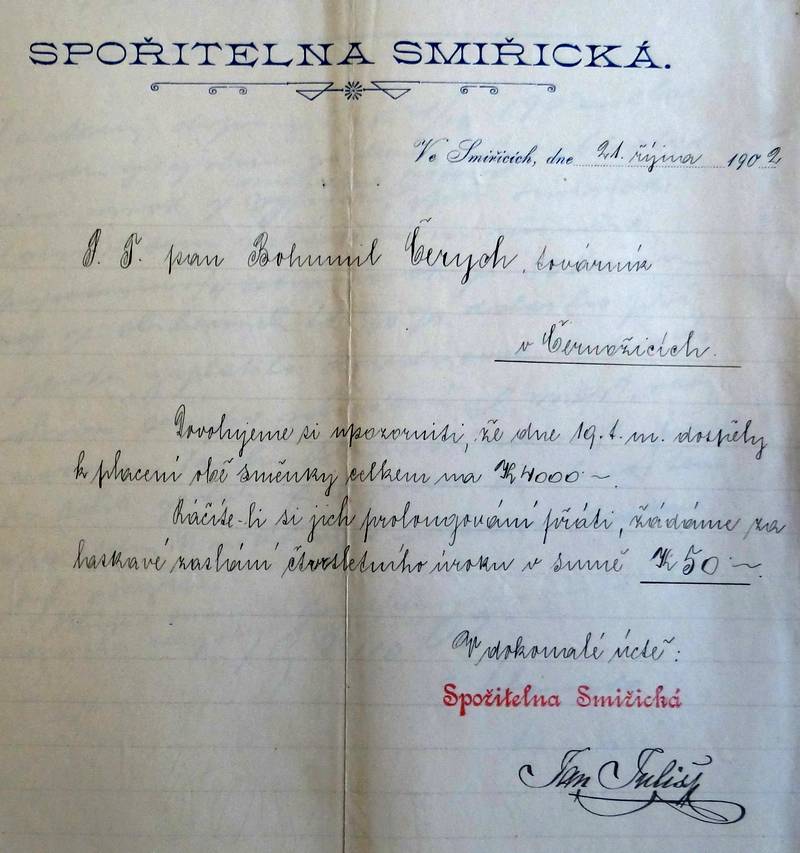 SPOŘITELNA SMIŘICKÁ.
Ve Smiřicích, dne 21. října 1902
P. T. pan Bohumil Čerych, továrník
v Černožicích.
Dovolujeme si upozorniti, že dne 19. t. m. dospěly
k placení obě směnky celkem na K 4000·~.
Ráčíte-li si jich prolongování přáti, žádáme za
laskavé zaslání čtvrtletního úroku v sumě K 50·~.
V dokonalé úctě:
Spořitelna Smiřická
Jan